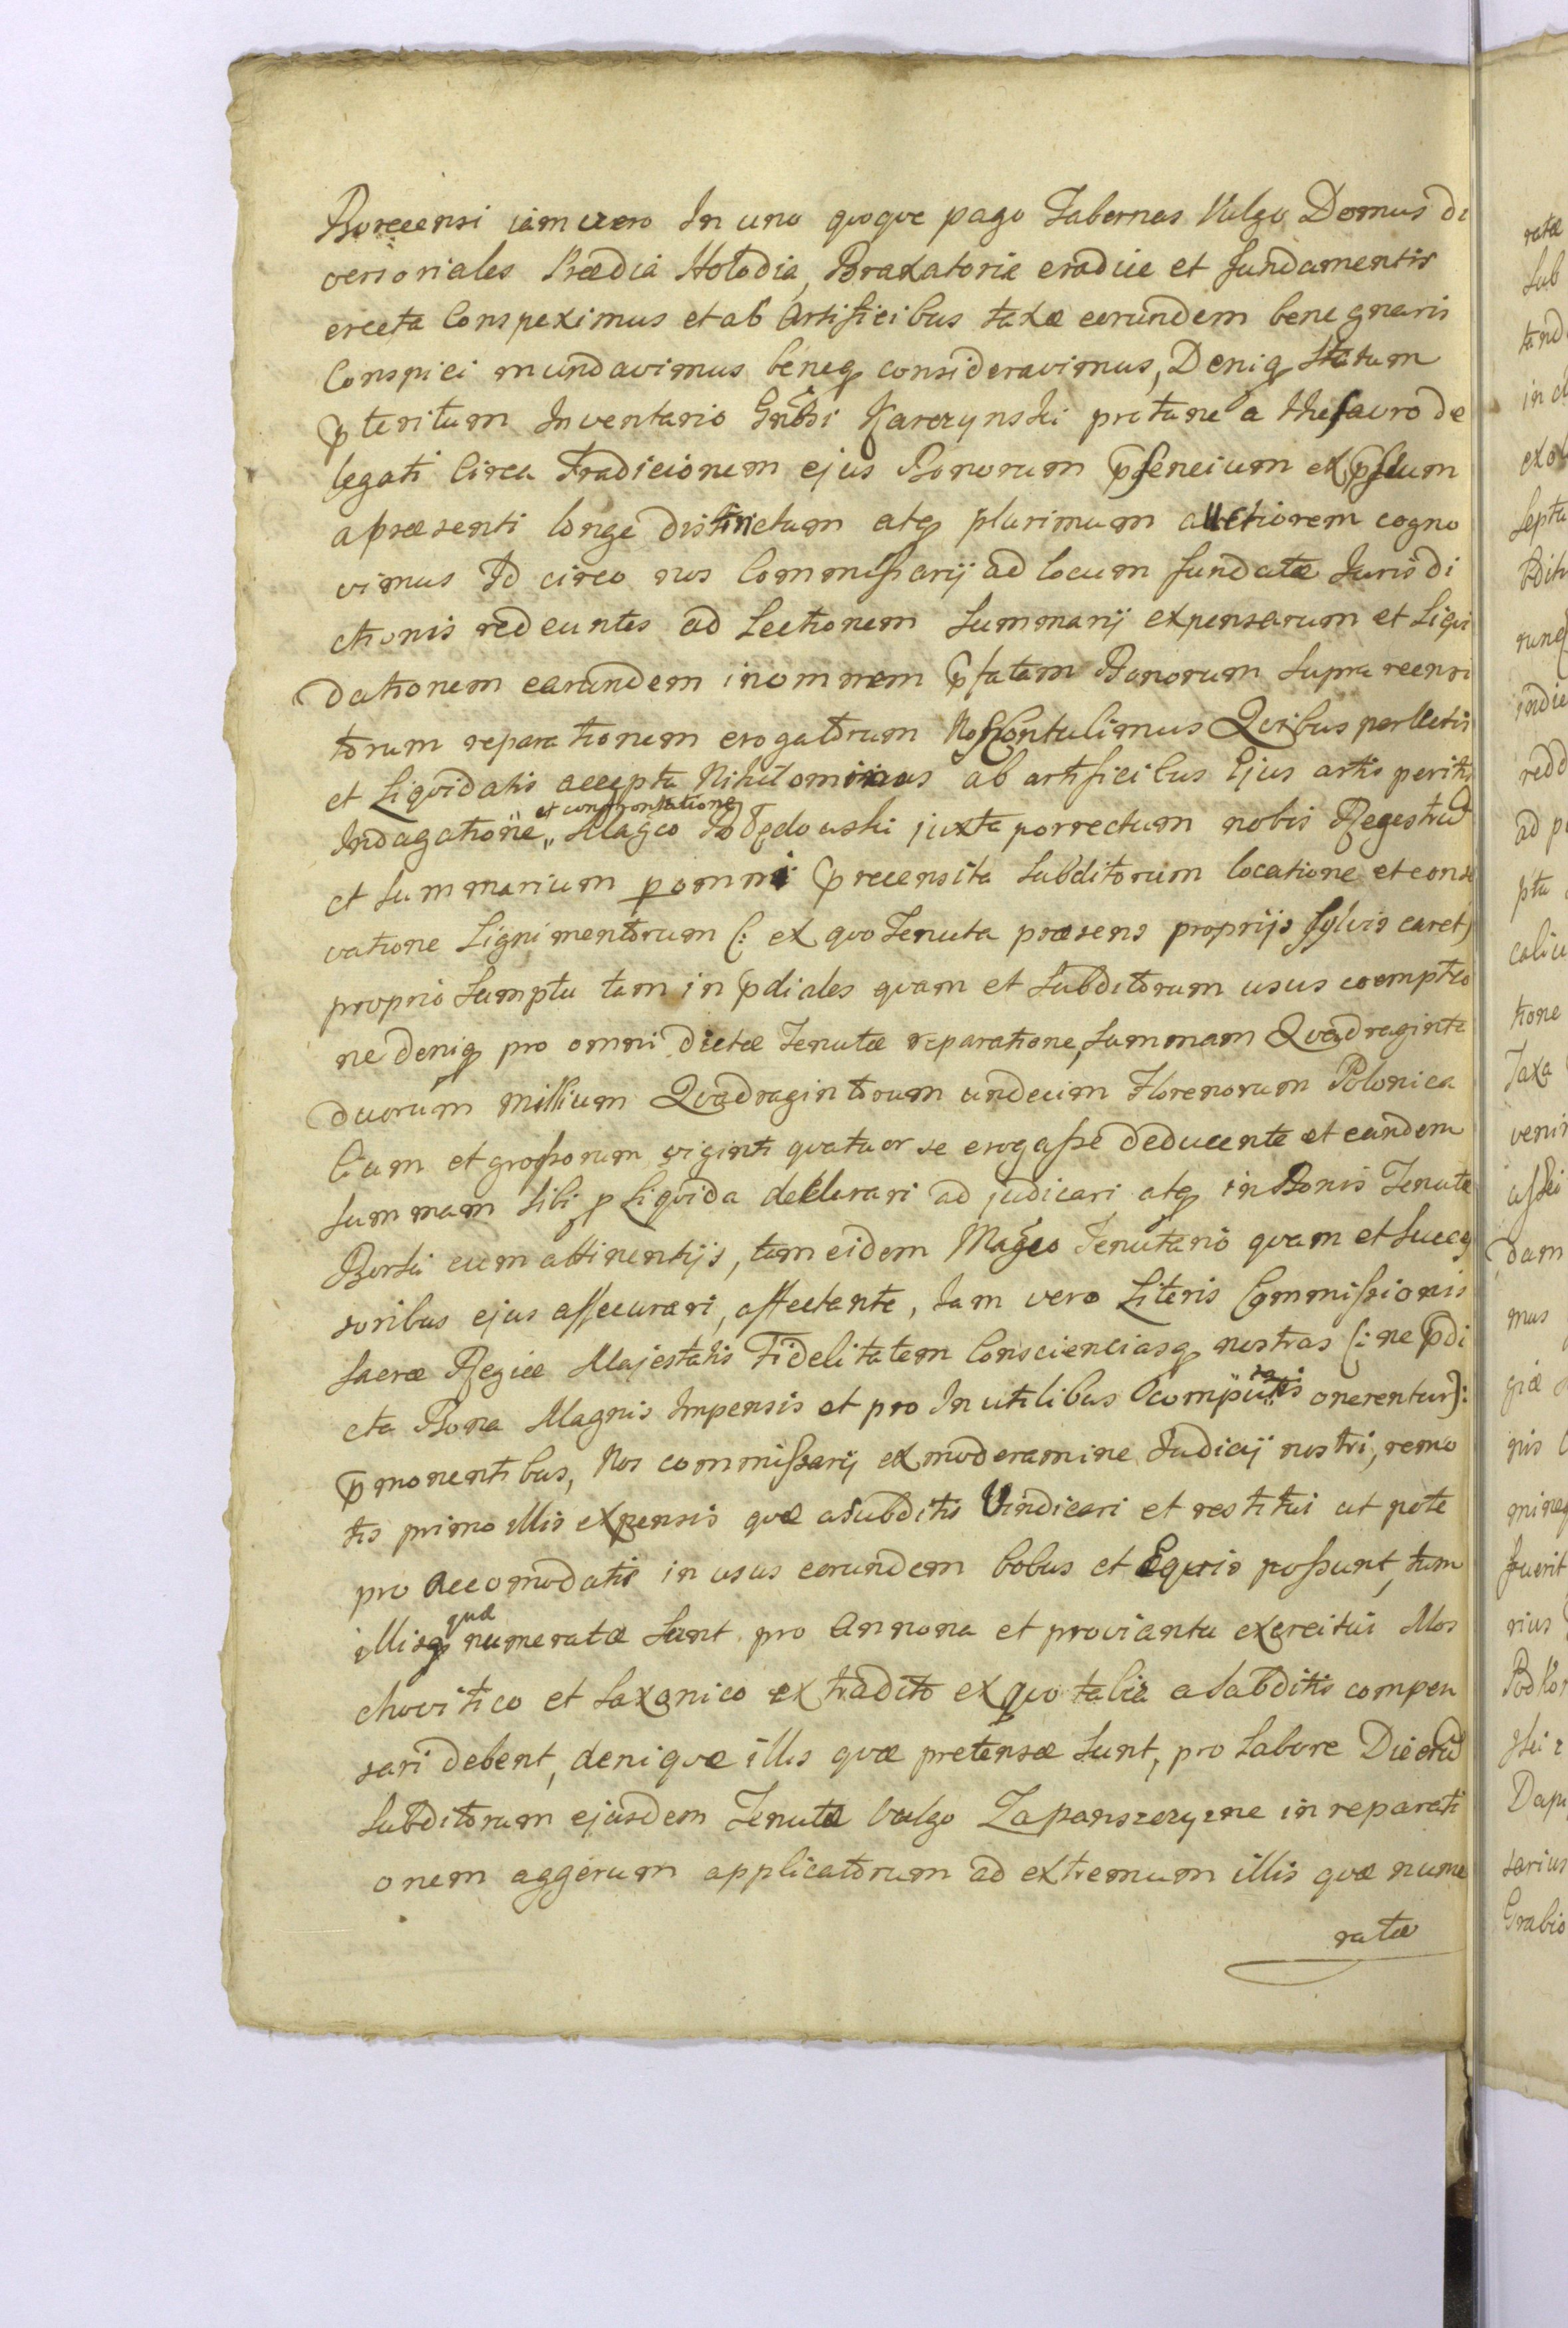 Boreccensi iam vero In uno quoque pago Tabernas Vulgo Domus di
versoriales Prædia Holodia, Braxatoria eradice et fundamentis
erecta Conspeximus et ab Artificibus taxæ eorundem bene gnaris
Conspici mundavimus beneq consideravimus, Deniq Statum
p̄teritum Inventario Gnbsi Karczynski protunc a thesauro de
legati Circa Tradicionem ejus Bonorum
apræsenti longe distinctum atq plurimum auctiorem cogno
vimus Id circo nos Commissarij ad locum fundatæ Jurisdi
ctionis redeuntes ad Lectionem Summarij expensarum et Liqui
dationem earundem inomnem p̄fatam Bonorum Supra recensi
torum reparationem erogatorum Nos Contulimus Quibus perlectis
et Liquidatis accepta Nihilominus ab artificibus Ejus artis peritis
Indagatione et confrontatione Magco juxta porrectum nobis Regestrū
et Summarium p omni p̄recensita Subditorum locatione et conser
vatione Lignimentorum (: ex quo Tenuta præsens proprijs Sylvis caret)
proprio Sumptu tam in p̄diales quam et Subditorum usus coemptio
ne deniq pro omni dictæ Tenutæ reparatione, Summam Quadraginta
duorum millium Quadragintorum undecim Florenorum Polonica
lium et grossorum viginti quatuor se erogasse deducente et eandem
Summam sibi p Liquida declarari ad judicari atq in Bonis Tenutæ
Borki cum attinentijs, tam eidem Magco Tenutario quam et Succes
soribus ejus assecurari, affectante, Iam vero Literis Commissionis
Sacræ Regiæ Majestatis Fidelitatem Conscienciasq nostras (: ne p̄di
cta Bona Magnis Impensis et pro Inutilibus computatis onerentur):
p̄monentibus, Nos commissarij ex moderamine Judicij nostri, remo
tis primo illis expensis quæ a Subditis Vindicari et restitui ut pote
pro Accomodatis in usus eorundem bobus et Equis possunt, tum
illisq quæ numeratæ Sunt pro Annona et provianta exercitui Mos
choviti co et Saxonico ex tradito ex quo talia a Subditis compen
sari debent, denique illis quæ pretensæ Sunt, pro Labore Dierū
Subditorum ejusdem Tenutæ Vulgo Zapanszczyzne in reparati
onem aggerum applicatorum ad extremum illis quæ nume
ratæ
ratæ
Sub
tand
exol
Septu
indie
redd
ad p
calicu
tione
Taxa
dam
mus
giæ
fuerit
rius
sarius
Grabio